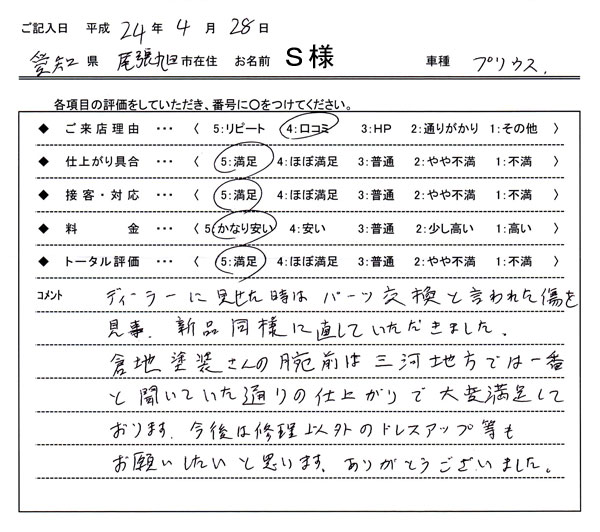 ご記入日 平成 24 年 4 月 28 日
愛知 県 尾張旭 市在住 お名前 S様 車種 プリウス.
各項目の評価をしていただき、番号に○をつけてください。
◆ ご来店理由 ・・・ 〈 5:リピート 4:口コミ 3:HP 2:通りがかり 1:その他 〉
◆ 仕上がり具合 ・・・ 〈 5:満足 4:ほぼ満足 3:普通 2:やや不満 1:不満 〉
◆ 接客・対応 ・・・ 〈 5:満足 4:ほぼ満足 3:普通 2:やや不満 1:不満 〉
◆ 料金 ・・・ 〈 5:かなり安い 4:安い 3:普通 2:少し高い 1:高い 〉
◆ トータル評価 ・・・ 〈 5:満足 4:ほぼ満足 3:普通 2:やや不満 1:不満 〉
コメント ディーラーに見せた時はパーツ交換と言われた傷を
見事、新品同様に直していただきました。
倉地塗装さんの腕前は三河地方では一番
と聞いていた通りの仕上がりで大変満足して
おります。今後は修理以外のドレスアップ等も
お願いしたいと思います。ありがとうございました。